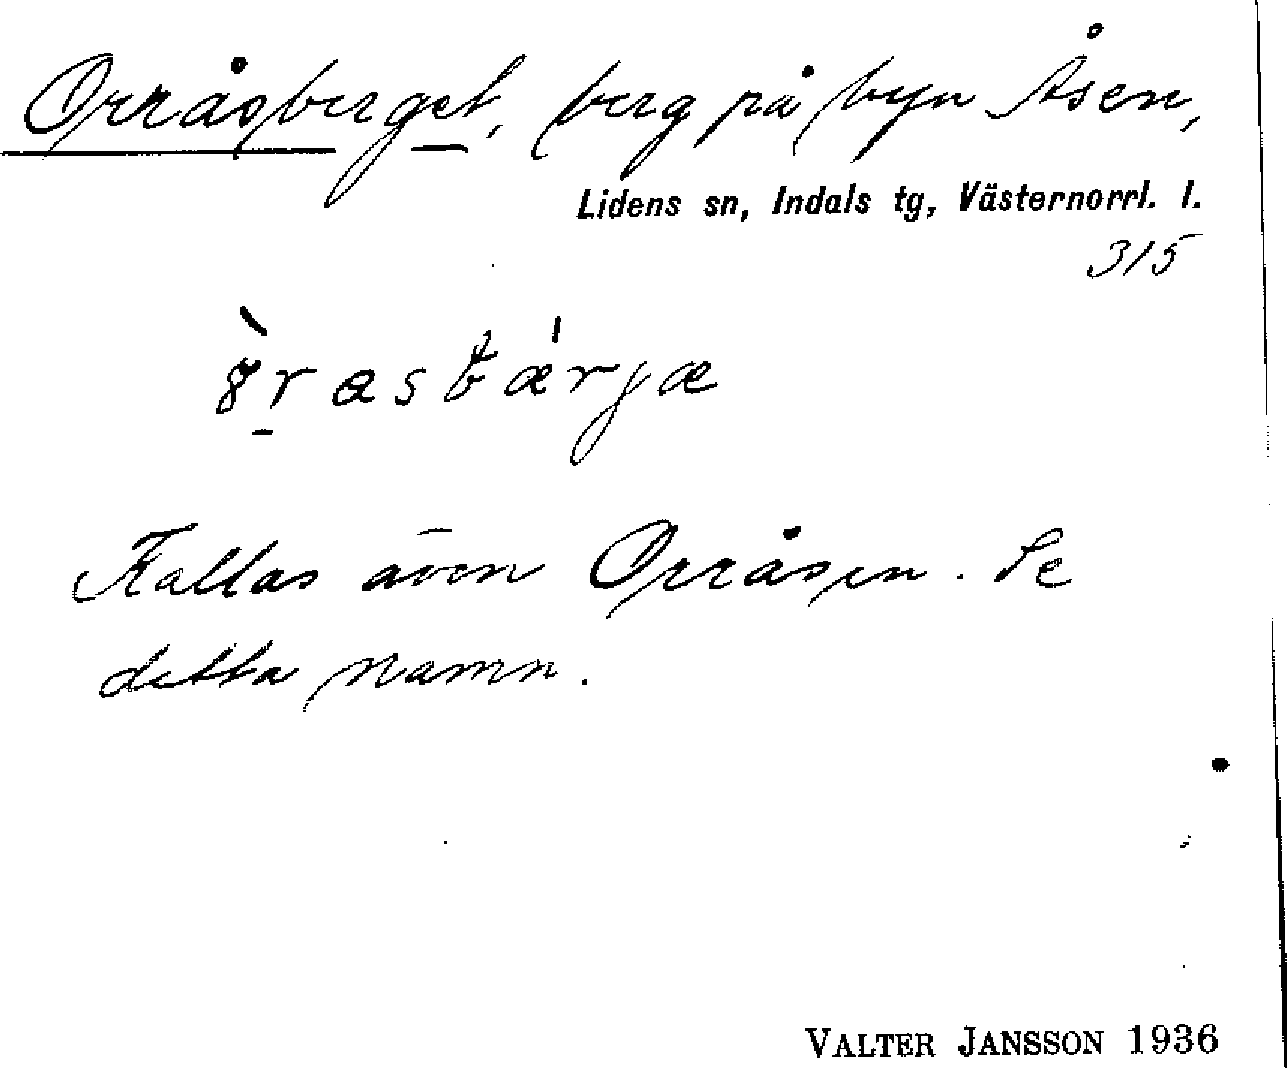 Orråsberget, berg på byn Åsen,
Lidens sn, Indals tg, Västernorrl. l.
315
Kallas även Orråsen. Se
detta namn.
VALTER JANSSON 1936